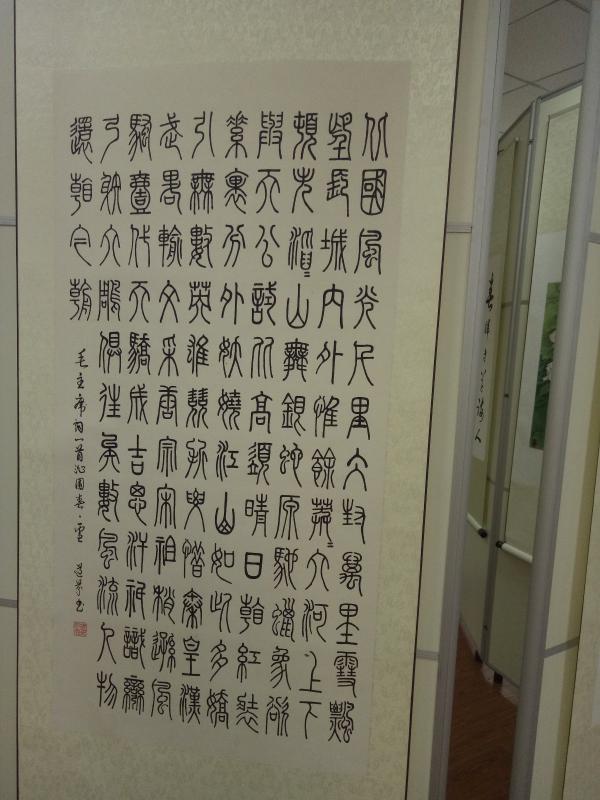 北國風光千里冰封萬里雪飄
望長城內外惟餘莽〻大河上下
頓失滔〻山舞銀蛇原馳蠟象欲
與天公試比高須晴日看紅裝
素裹分外妖嬈江山如此多嬌
引無數英雄競折腰惜秦皇漢
武略輸文采唐宗宋祖稍遜風
騷壹代天驕成吉思汗祇識彎
弓射大鵰俱往矣數風流人物
還看今朝
毛主席詞一首沁園春·雪